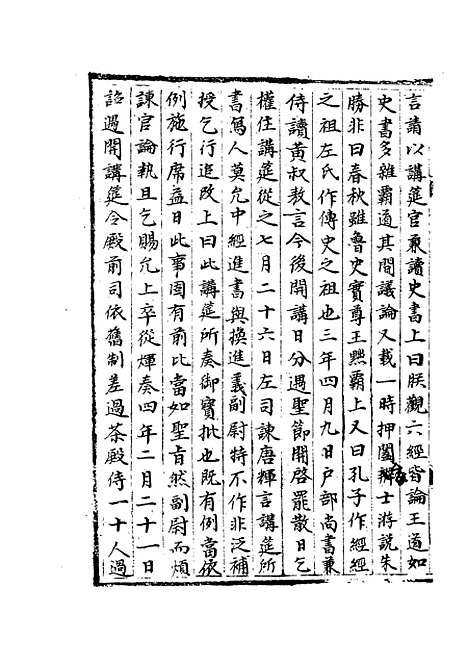 言請以講筵官兼讀史書上曰朕觀六經皆論王道如
史書多雜霸道其間議論又載一時押闔辯士游説朱
勝非曰春秋雖魯史實尊王黜霸上又曰孔子作經經
之祖左氏作傳史之祖也三年四月九日户部尚書兼
侍讀黄叔敖言今後開講日分遇聖節開啓罷散日乞
權住講筵從之七月二十六日左司諫唐輝言講筵所
書寫人莫允中經進書與換進義副尉特不作非泛補
授乞行追改上曰此講筵所奏御寶批也既有例當依
例施行席益曰此事固有前比當如聖旨然副尉而煩
諫官論執且乞賜允上卒從煇奏四年二月二十一日
詔遇開講筵令殿前司依舊制差過茶殿侍一十人過